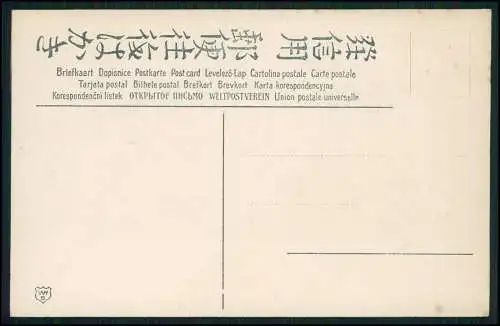 發信用 郵便往復はがき
Briefkaart Dopisnice Postkarte Post card Levelező-Lap Cartolina postale Carte postale
Tarjeta postal Bilhete postal Brefkort Brevkort Karta korespondencyjna
Korespondenční lístek ОТКРЫТОЕ ПИСЬМО WELTPOSTVEREIN Union postale universelle